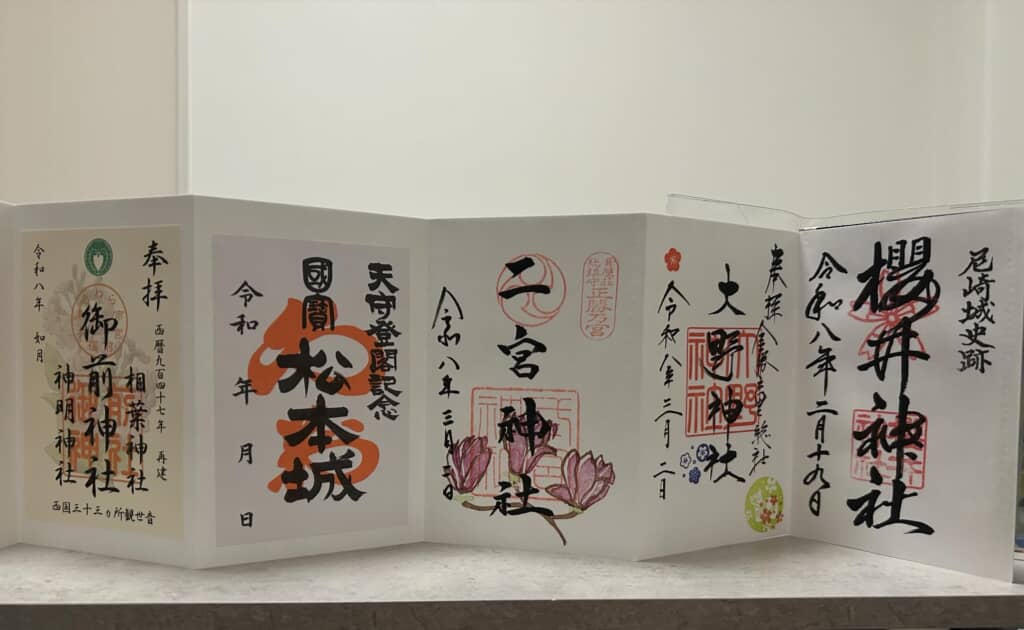 尼崎城史跡
櫻井神社
令和八年二月十九日
奉拝
大野神社
令和八年三月二日
正勝乃宮
二宮神社
令和八年三月二日
天守登閣記念
國寳
松本城
令和 年 月 日
奉拝
西暦九百四十七年 再建
相葉神社
御前神社
神明神社
令和八年 如月
西国三十三ヵ所観世音